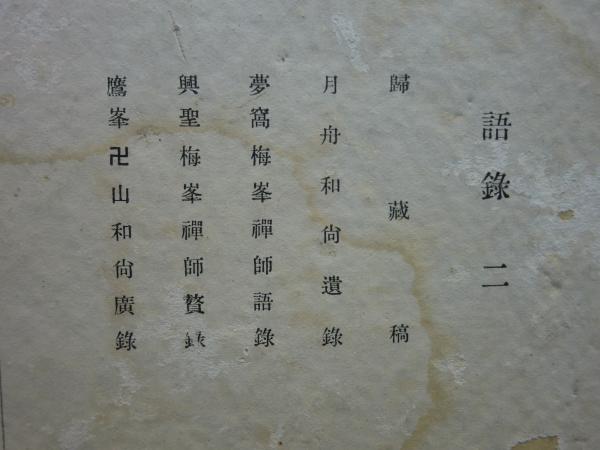 語錄 二
歸藏稿
月舟和尙遺錄
夢窩梅峯禪師語錄
興聖梅峯禪師贅錄
鷹峯卍山和尙廣錄